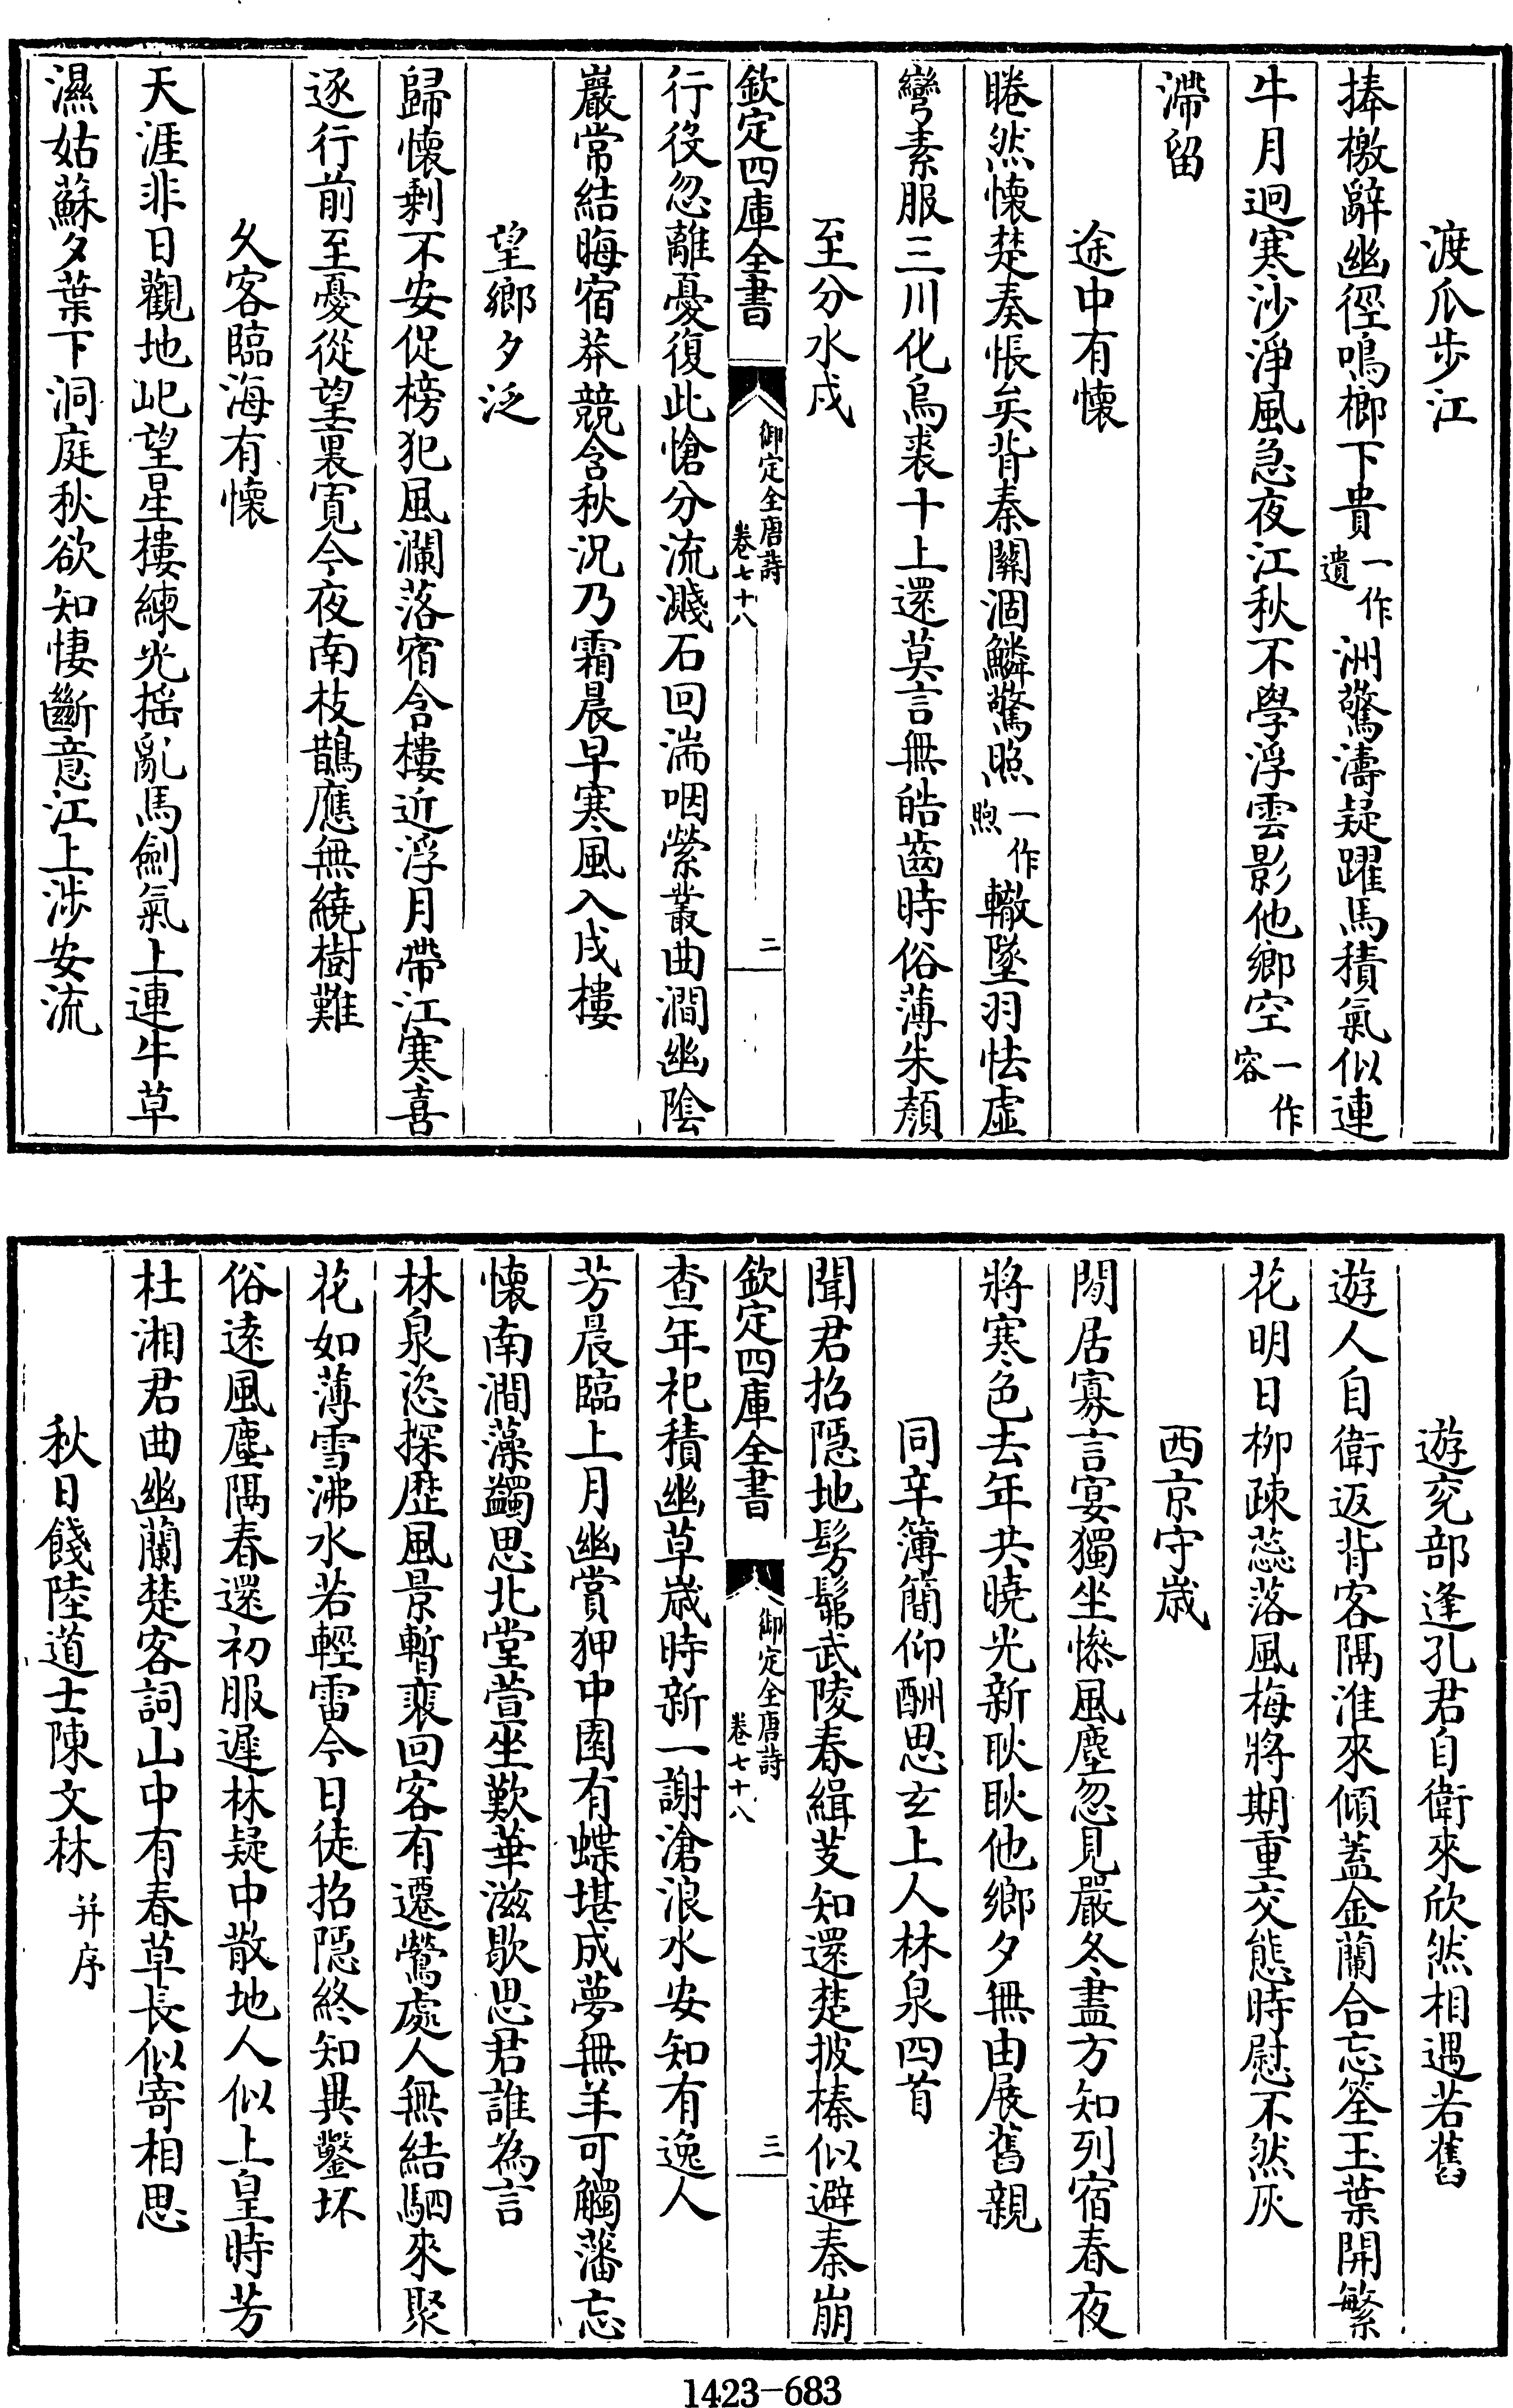 渡瓜步江
捧檄辭幽徑鳴榔下貴一作遺洲驚濤疑躍馬積氣似連
牛月迥寒沙淨風急夜江秋不學浮雲影他鄉空一作容
滯留
途中有懷
睠然懷楚奏悵矣背秦關涸鱗驚照一作煦轍墜羽怯虛
彎素服三川化烏裘十上還莫言無皓齒時俗薄朱顏
至分水戍
欽定四庫全書
御定全唐詩
卷七十八
二
行役忽離憂復此愴分流濺石回湍咽縈叢曲澗幽陰
巖常結晦宿莽競含秋況乃霜晨早寒風入戍樓
望鄉夕泛
歸懷剩不安促榜犯風瀾落宿含樓近浮月帶江寒喜
逐行前至憂從望裏寬今夜南枝鵲應無繞樹難
久客臨海有懷
天涯非日觀地屺望星樓練光搖亂馬劒氣上連牛草
濕姑蘇夕葉下洞庭秋欲知悽斷意江上涉安流
遊兖部逢孔君自衛來欣然相遇若舊
遊人自衛返背客隔淮來傾蓋金蘭合忘筌玉葉開繁
花明日柳疎蕊落風梅將期重交態時慰不然灰
西京守歲
閒居寡言宴獨坐慘風塵忽見嚴冬盡方知列宿春夜
將寒色去年共曉光新耿耿他鄉夕無由展舊親
同辛簿簡仰酬思玄上人林泉四首
聞君招隱地髣髴武陵春緝芰知還楚披榛似避秦崩
欽定四庫全書
御定全唐詩
卷七十八
三
查年祀積幽草歲時新一謝滄浪水安知有逸人
芳晨臨上月幽賞狎中園有蝶堪成夢無羊可觸藩忘
懷南澗藻蠲思北堂萱坐歎華滋歇思君誰為言
林泉恣探歷風景暫裵回客有遷鶯處人無結駟來聚
花如薄雪沸水若輕雷今日徒招隱終知異鑿坏
俗遠風塵隔春還初服遲林疑中散地人似上皇時芳
杜湘君曲幽蘭楚客詞山中有春草長似寄相思
秋日餞陸道士陳文林并序
1423-683